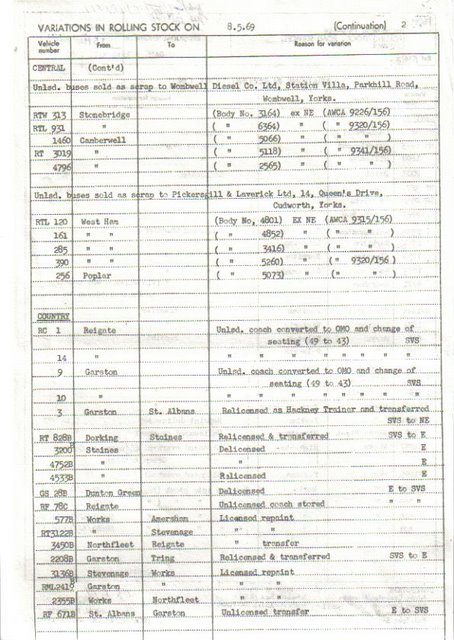 VARIATIONS IN ROLLING STOCK ON 8.5.69 (Continuation) 2
Vehicle number From To Reason for variation
CENTRAL (Cont'd)
Unlsd. buses sold as scrap to Wombwell Diesel Co. Ltd, Station Villa, Parkhill Road,
Wombwell, Yorks.
RTW 313 Stonebridge (Body No. 3164) ex NE (AWCA 9226/156)
RTL 931 " ( " 6364) " ( " 9320/156)
1460 Camberwell ( " 5066) " ( " " )
RT 3019 " ( " 5118) " ( " 9341/156)
4796 " ( " 2565) " ( " " )
Unlsd. buses sold as scrap to Pickersgill & Laverick Ltd, 14, Queen's Drive,
Cudworth, Yorks.
RTL 120 West Ham (Body No, 4801) EX NE (AWCA 9315/156)
161 " " ( " 4852) " ( " " )
285 " " ( " 3416) " ( " " )
390 " " ( " 5260) " ( " 9320/156 )
256 Poplar ( " 5073) " ( " " )
COUNTRY
RC 1 Reigate Unlsd. coach converted to OMO and change of
seating (49 to 43) SVS
14 " " " " " " " "
9 Garston Unlsd. coach converted to OMO and change of
seating (49 to 43) SVS
10 " " " " " " " "
3 Garston St. Albans Relicensed as Hackney Trainer and transferred
SVS to NE
RT 828B Dorking Staines Relicensed & transferred SVS to E
3200B Staines Delicensed E
4752B " " E
4533B " Relicensed E
GS 28B Dunton Green Delicensed E to SVS
RF 78C Reigate Unlicensed coach stored " "
577B Works Amersham Licensed repaint
RT3122B " Stevenage " "
3450B Northfleet Reigate " transfer
2208B Garston Tring Relicensed & transferred SVS to E
3136B Stevenage Works Licensed repaint
RML2416B Garston " " "
2355B Works Northfleet " "
RF 671B St. Albans Garston Unlicensed transfer E to SVS